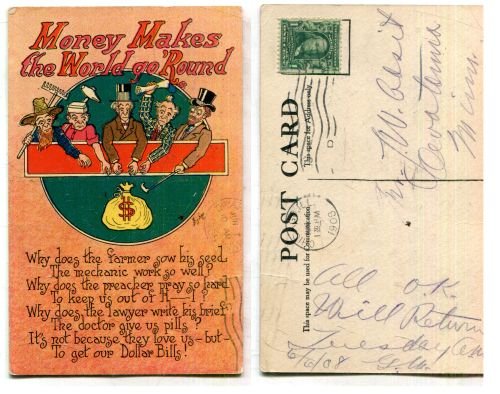 Money Makes
the World go 'Round
$
Why does the farmer sow his seed
The mechanic work so well?
Why does the preacher pray so hard
To keep us out of H—l?
Why does the lawyer write his brief
The doctor give us pills
It's not because they love us—but—
To get our Dollar Bills!
POST CARD
This space for Address only.
This space may be used for Communication.
1 PM
1908
All O.K.
Will Return
Tuesday
6/6/08